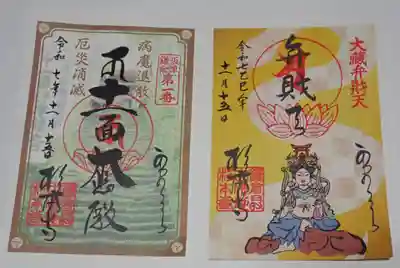 病魔退散
坂東
鎌倉
第一番
十一面大悲殿
厄災消滅
令和七年十一月十五日
杉本寺
大藏弁財天
弁財天
令和七乙巳年
十一月十五日
杉本寺